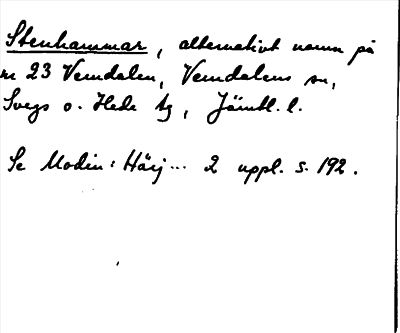 Stenhammar, alternativt namn på
nr 23 Vemdalen, Vemdalens sn,
Svegs o. Hede tg, Jämtl. l.
Se Modin: Härj... 2 uppl. s. 192.